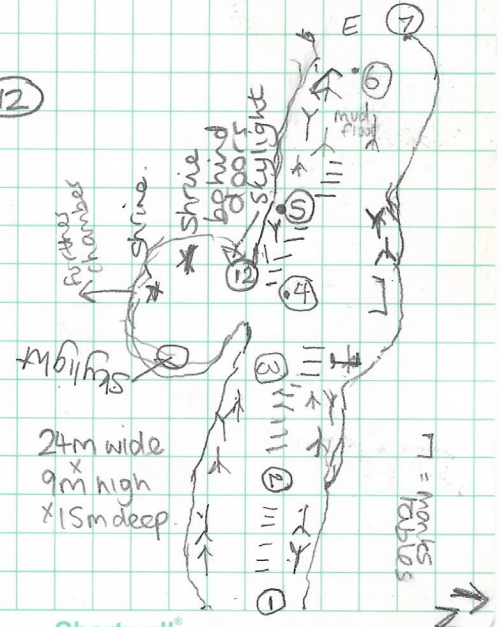 12
E
7
6
mud
floor
shrine
behind
door
skylight
5
further
chamber
shrine
12
4
skylight
3
24m wide
x
9m high
x 15m deep
2
= monks
tables
1
N
Chartwell®